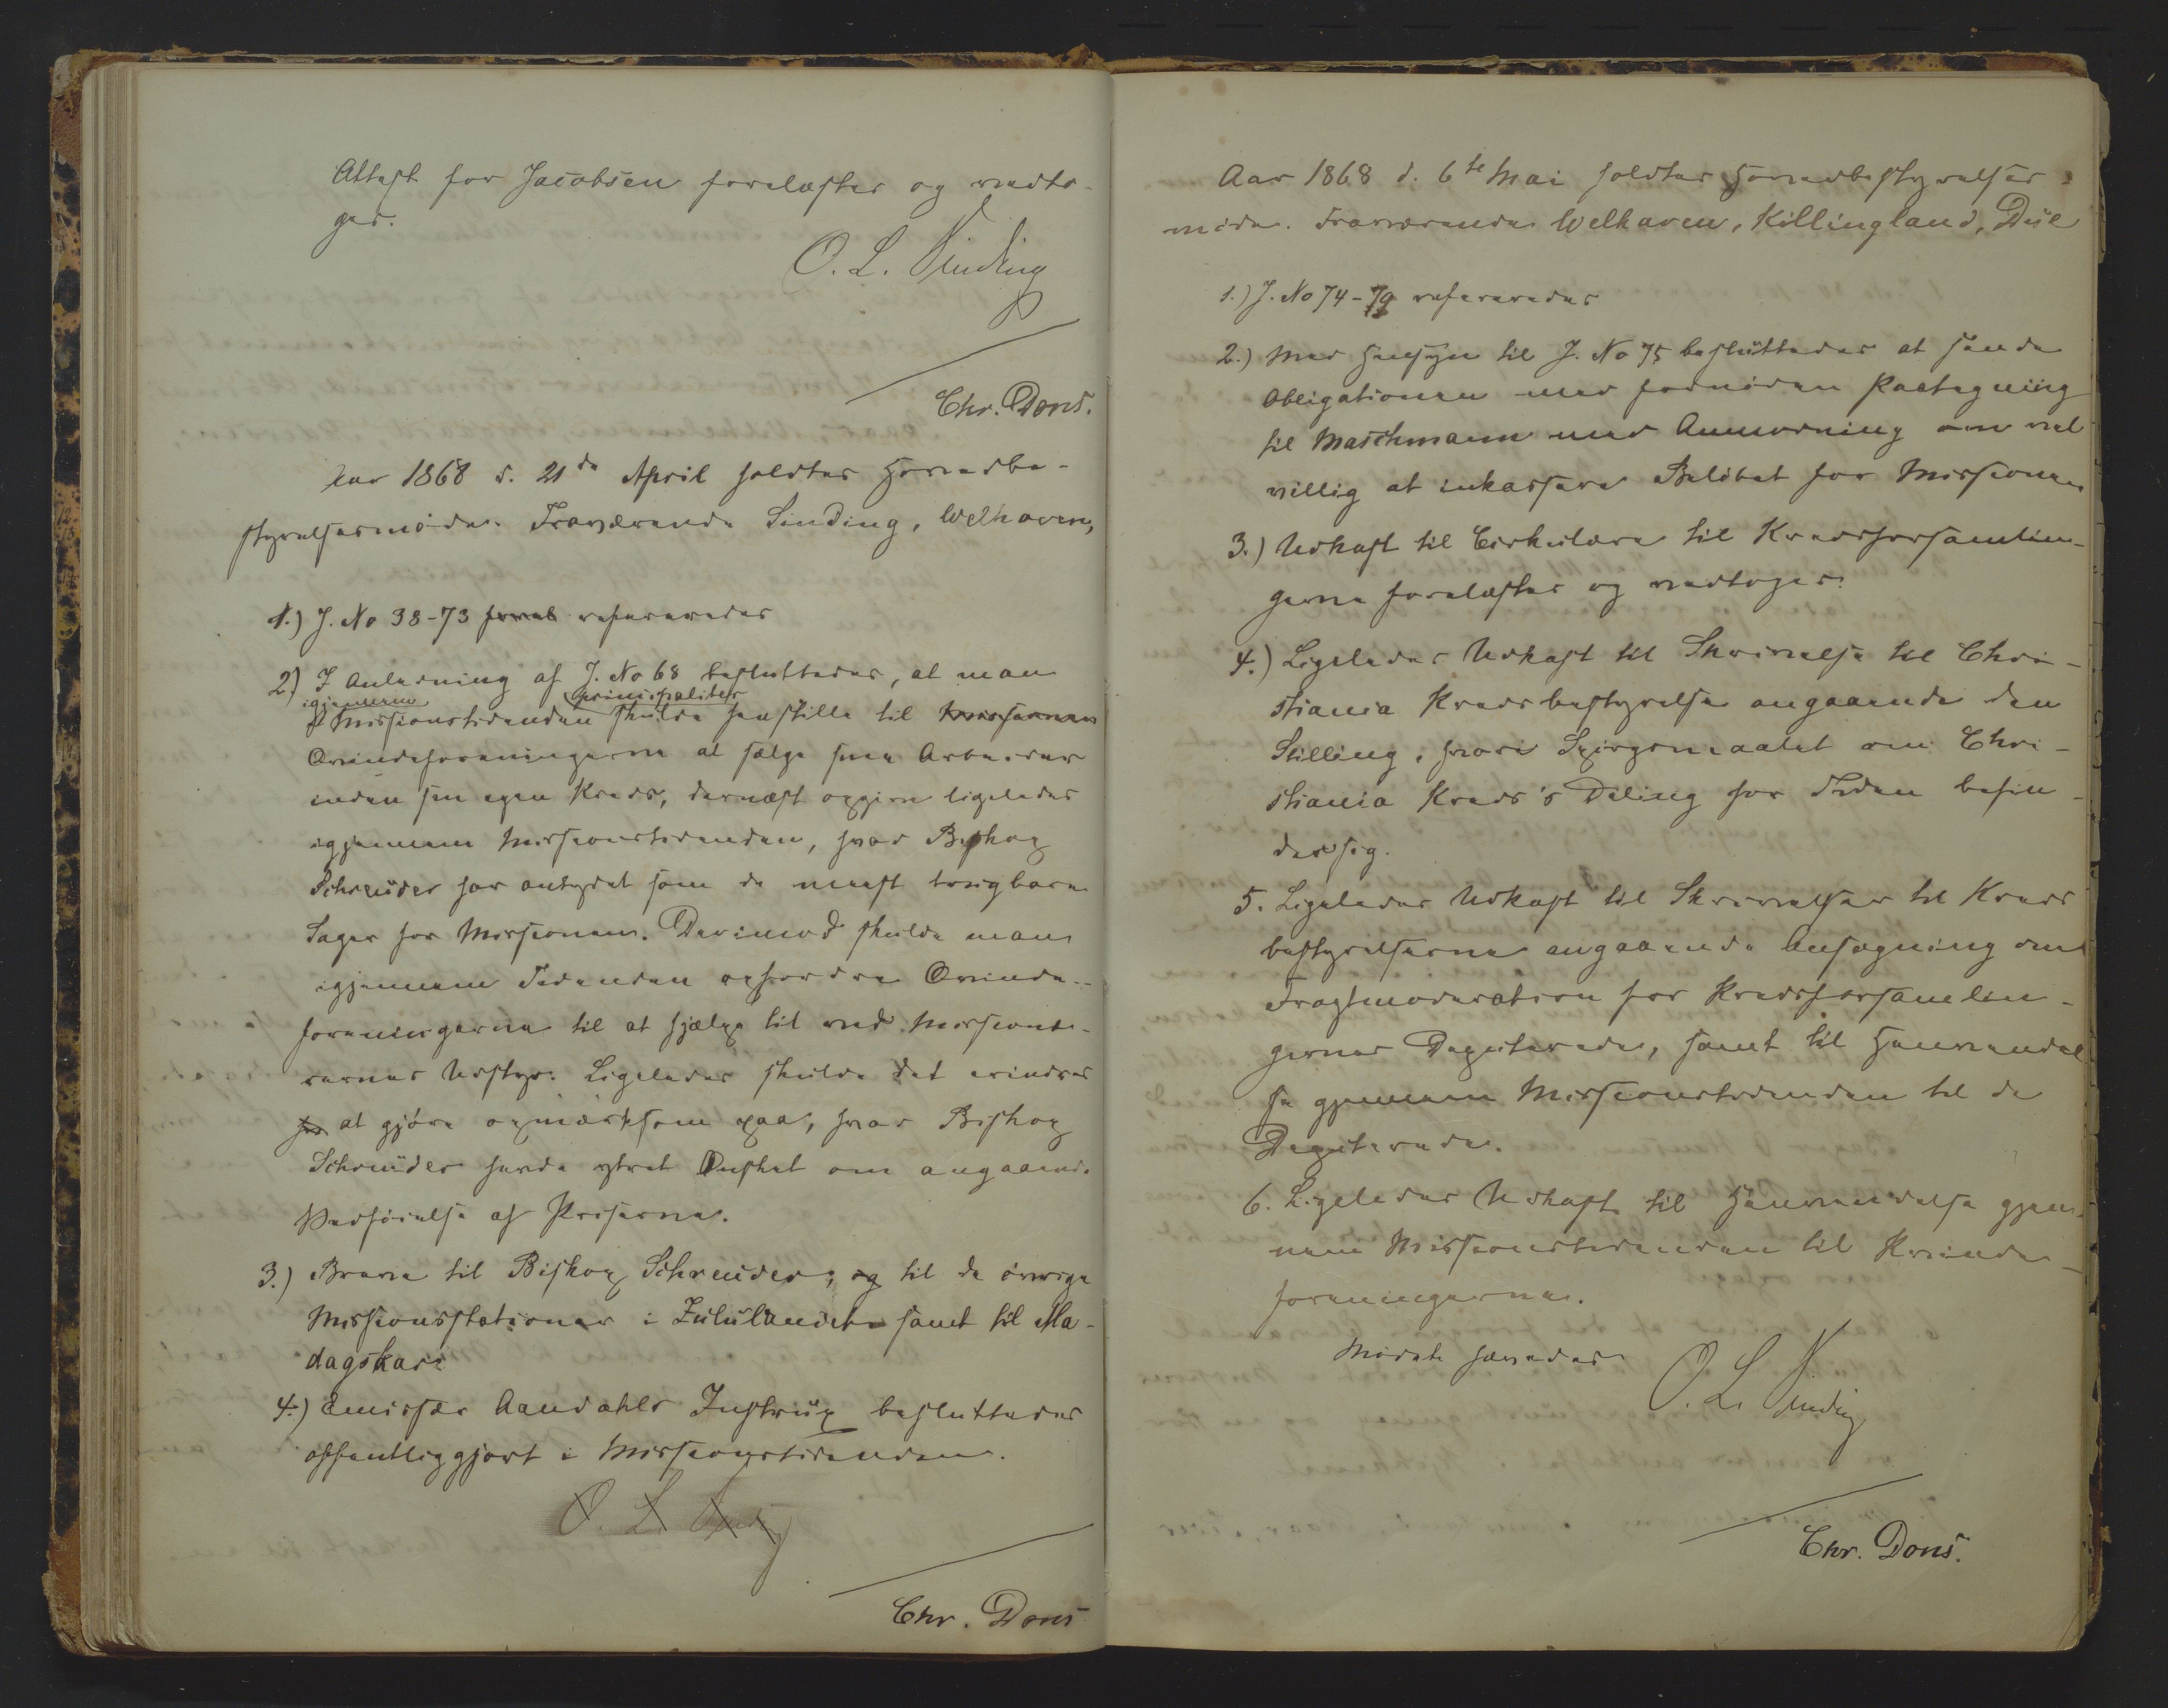 Attest for Jacobsen forelæstes og vedto-
ges.
O. L. Sinding
Chr. Dons.
Aar 1868 d. 21de April holdtes Hovedbe-
styrelsesmøde. Fraværende Sinding, Welhaven,
1.) J. No 38-73 refereredes
2.) I Anledning af J. No 68 besluttedes, at man
igjennem Missionstidenden principaliter skulde henstille til
Qvindeforeningerne at sælge sine Arbeider
inden sin egen Kreds, dernæst opgive ligeledes
igjennem Missionstidenden, hvad Biskop
Schreuder har antydet som de meest brugbare
Sager for Missionen. Derimod skulde man
igjennem Tidenden opfordre Qvinde-
foreningerne til at hjælpe til ved Missionæ-
rernes Udstyr. Ligeledes skulde det erindres
at gjøre opmærksom paa, hvad Biskop
Schreuder havde ytret Ønsket om angaaende
Paaførelse af Priserne.
3.) Breve til Biskop Schreuder, og til de øvrige
Missionsstationer i Zululandet samt til Ma-
dagskar.
4.) Emissær Aandahls Instrux besluttedes
offentliggjort i Missionstidenden.
O. L. Sinding
Chr. Dons
Aar 1868 d. 6te Mai holdtes Hovedbestyrelses-
møde. Fraværende Welhaven, Killingland, Due
1.) J. No 74-79 refereredes
2.) Med Hensyn til J. No 75 besluttedes at sende
Obligationen med fornøden Paategning
til Maschmann med Anmodning om vel-
villig at inkassere Beløbet for Missionen
3.) Udkast til Cirkulære til Kredsforsamlin-
gerne forelæstes og vedtoges.
4.) Ligeledes Udkast til Skrivelse til Chri-
stiania Kredsbestyrelse angaaende den
Stilling, hvori Spørgsmaalet om Chri-
stiania Kreds's Deling for Tiden befin-
der sig.
5. Ligeledes Udkast til Skrivelser til Kreds
bestyrelserne angaaende Ansøgning om
Fragtmoderation for Kredsforsamlin-
gernes Deputerede, samt til Henvendel
se gjennem Missionstidenden til de
Deputerede.
6. Ligeledes Udkast til Henvendelse gjen-
nem Missionstidenden til Kvinde-
foreningerne.
Mødet hævedes
O. L. Sinding
Chr. Dons.